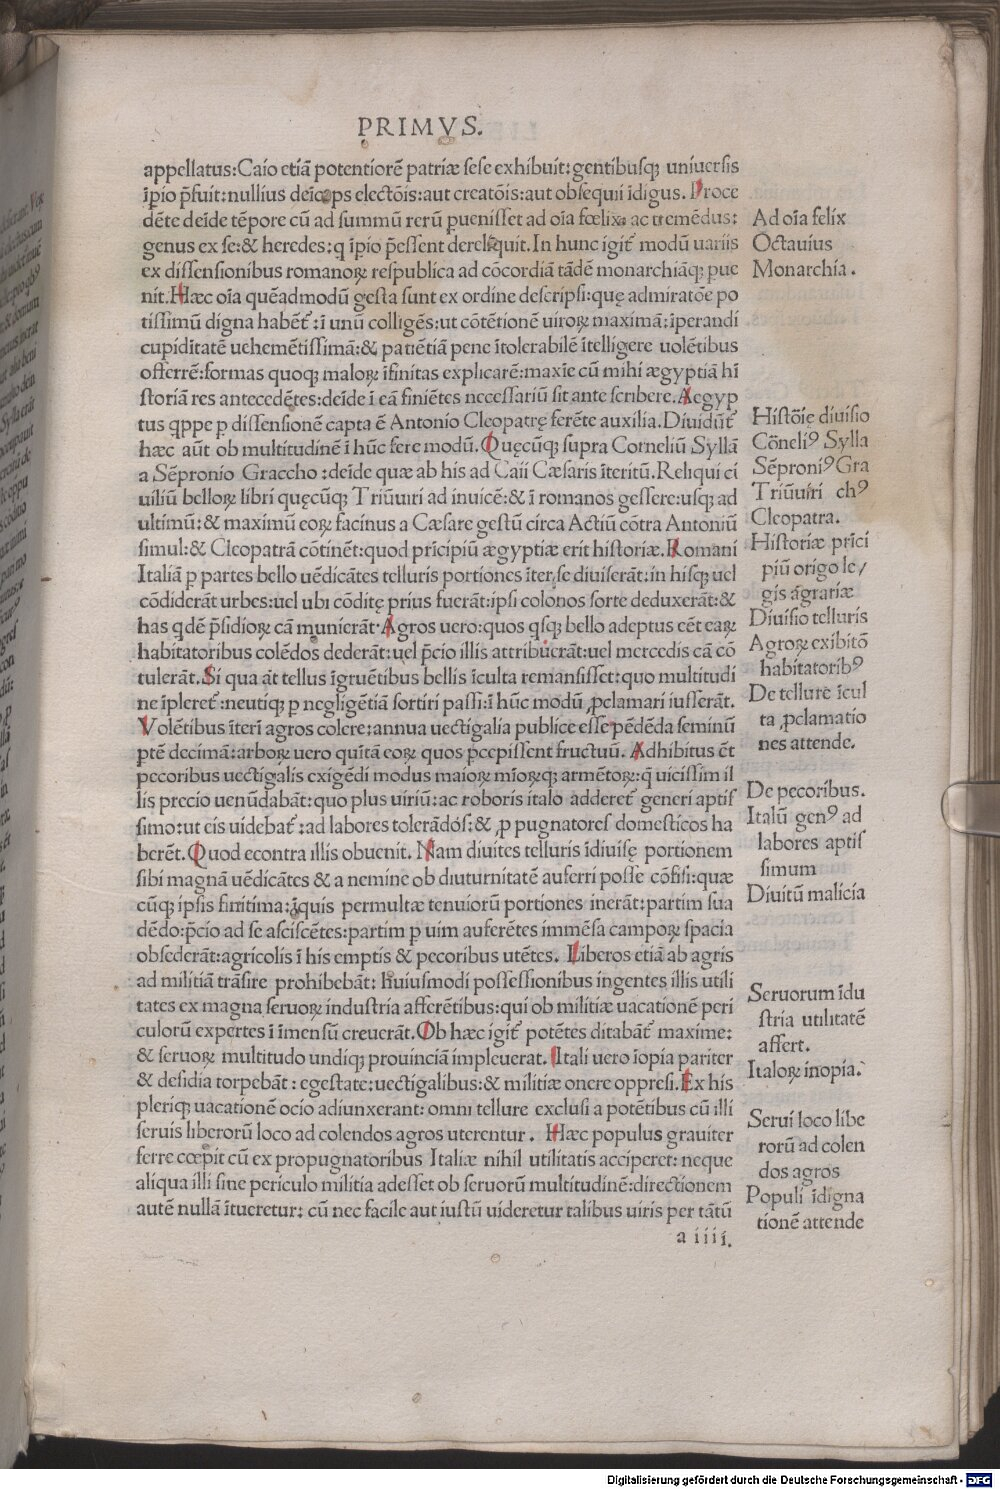 PRIMVS.
appellatus:Caio etiā potentiorē patriæ sese exhibuit:gentibusq; uniuersis
īpio p̄fuit:nullius deīceps electōis:aut creatōis:aut obsequii īdigus. Proce
dēte deīde tēpore cū ad summū rerū puenisset ad oīa fœlix: ac tremēdus:
genus ex se:& heredes:q īpio p̄essent dereliquit.In hunc igit̄ modū uariis
ex dissensionibus romanoꝝ respublica ad cōcordiā tādē monarchiāq; pue
nit.Hæc oīa quēadmodū gesta sunt ex ordine descripsi:quę admiratōe po
tissimū digna habēt̄:ī unū colligēs:ut cōtētionē uiroꝝ maximā:īperandi
cupiditatē uehemētissimā:& patiētiā pene ītolerabilē ītelligere uolētibus
offerrē:formas quoq; maloꝝ īfinitas explicarē:maxīe cū mihi ægyptiā hī
storiā res antecedētes:deīde ī eā finiētes necessariū sit ante scribere.Aegyp
tus qppe p dissensionē capta ē Antonio Cleopatrę ferēte auxilia.Diuidūt̄
hæc aūt ob multitudinē ī hūc fere modū.Quęcūq; supra Corneliū Syllā
a Sēpronio Graccho :deīde quæ ab his ad Caii Cæsaris īteritū.Reliqui ci
uiliū belloꝝ libri quęcūq; Triūuiri ad inuicē:& ī romanos gessere:usq; ad
ultimū:& maximū eoꝝ facinus a Cæsare gestū circa Actiū cōtra Antoniū
simul:& Cleopatrā cōtinēt:quod prīcipiū ægyptiæ erit historiæ.Romani
Italiā p partes bello uēdicātes telluris portiones īter se diuiserāt:in hisq; uel
cōdiderāt urbes:uel ubi cōditę prius fuerāt:ipsi colonos sorte deduxerāt:&
has qdē p̄sidioꝝ cā munierāt.Agros uero:quos qsq; bello adeptus eēt eaꝝ
habitatoribus colēdos dederāt:uel p̄cio illis attribuerāt:uel mercedis cā cō
tulerāt.Si qua āt tellus īgruētibus bellis īculta remansisset:quo multitudi
ne īpleret̄:neutiq; p negligētiā sortiri passi:ī hūc modū ꝓclamari iusserāt.
Volētibus īteri agros colere:annua uectigalia publice esse pēdēda seminū
ptē decimā:arboꝝ uero quītā eoꝝ quos p̄cepissent fructuū. Adhibitus ēt
pecoribus uectigalis exigēdi modus maioꝝ mīoꝝq; armētoꝝ:q̄ uicissim il
lis precio uenūdabāt:quo plus uiriū:ac roboris italo adderet̄ generi aptis
simo:ut eis uidebat̄:ad labores tolerādos:& ꝓpugnatores domesticos ha
berēt.Quod econtra illis obuenit. Nam diuites telluris īdiuisę portionem
sibi magnā uēdicātes & a nemine ob diuturnitatē auferri posse cōfisi:quæ
cūq; ipsis finitima:īquis permultæ tenuiorū portiones inerāt:partim sua
dēdo:p̄cio ad se asciscētes:partim p uim auferētes immēsa campoꝝ spacia
obsederāt:agricolis ī his emptis & pecoribus utētes. Liberos etiā ab agris
ad militiā trāsire prohibebāt: huiusmodi possessionibus ingentes illis utili
tates ex magna seruoꝝ industria afferētibus:qui ob militiæ uacationē peri
culorū expertes ī īmensū creuerāt.Ob hæc igit̄ potētes ditabāt̄ maxime:
& seruoꝝ multitudo undiq; prouinciā impleuerat. Itali uero īopia pariter
& desidia torpebāt : egestate:uectigalibus:& militiæ onere oppresi.Ex his
pleriq; uacationē ocio adiunxerant: omni tellure exclusi a potētibus cū illi
seruis liberorū loco ad colendos agros uterentur. Hæc populus grauiter
ferre cœpit cū ex propugnatoribus Italiæ nihil utilitatis acciperet: neque
aliqua illi sine periculo militia adesset ob seruorū multitudinē:directionem
autē nullā ītueretur: cū nec facile aut iustū uideretur talibus uiris per tātū
a iiii.
Ad oīa felix
Octauius
Monarchia.
Histōię diuisio
Cōneliꝰ Sylla
Sēproniꝰ Gra
Triūuiri chꝰ
Cleopatra.
Historiæ prīci
piū origo le/
gis agrariæ
Diuisio telluris
Agroꝝ exibitō
habitatoribꝰ
De tellure īcul
ta ꝓclamatio
nes attende.
De pecoribus.
Italū genꝰ ad
labores aptis
simum
Diuitū malicia
Seruorum īdu
stria utilitatē
affert.
Italoꝝ inopia.
Serui loco libe
rorū ad colen
dos agros
Populi īdigna
tionē attende
Digitalisierung gefördert durch die Deutsche Forschungsgemeinschaft - DFG